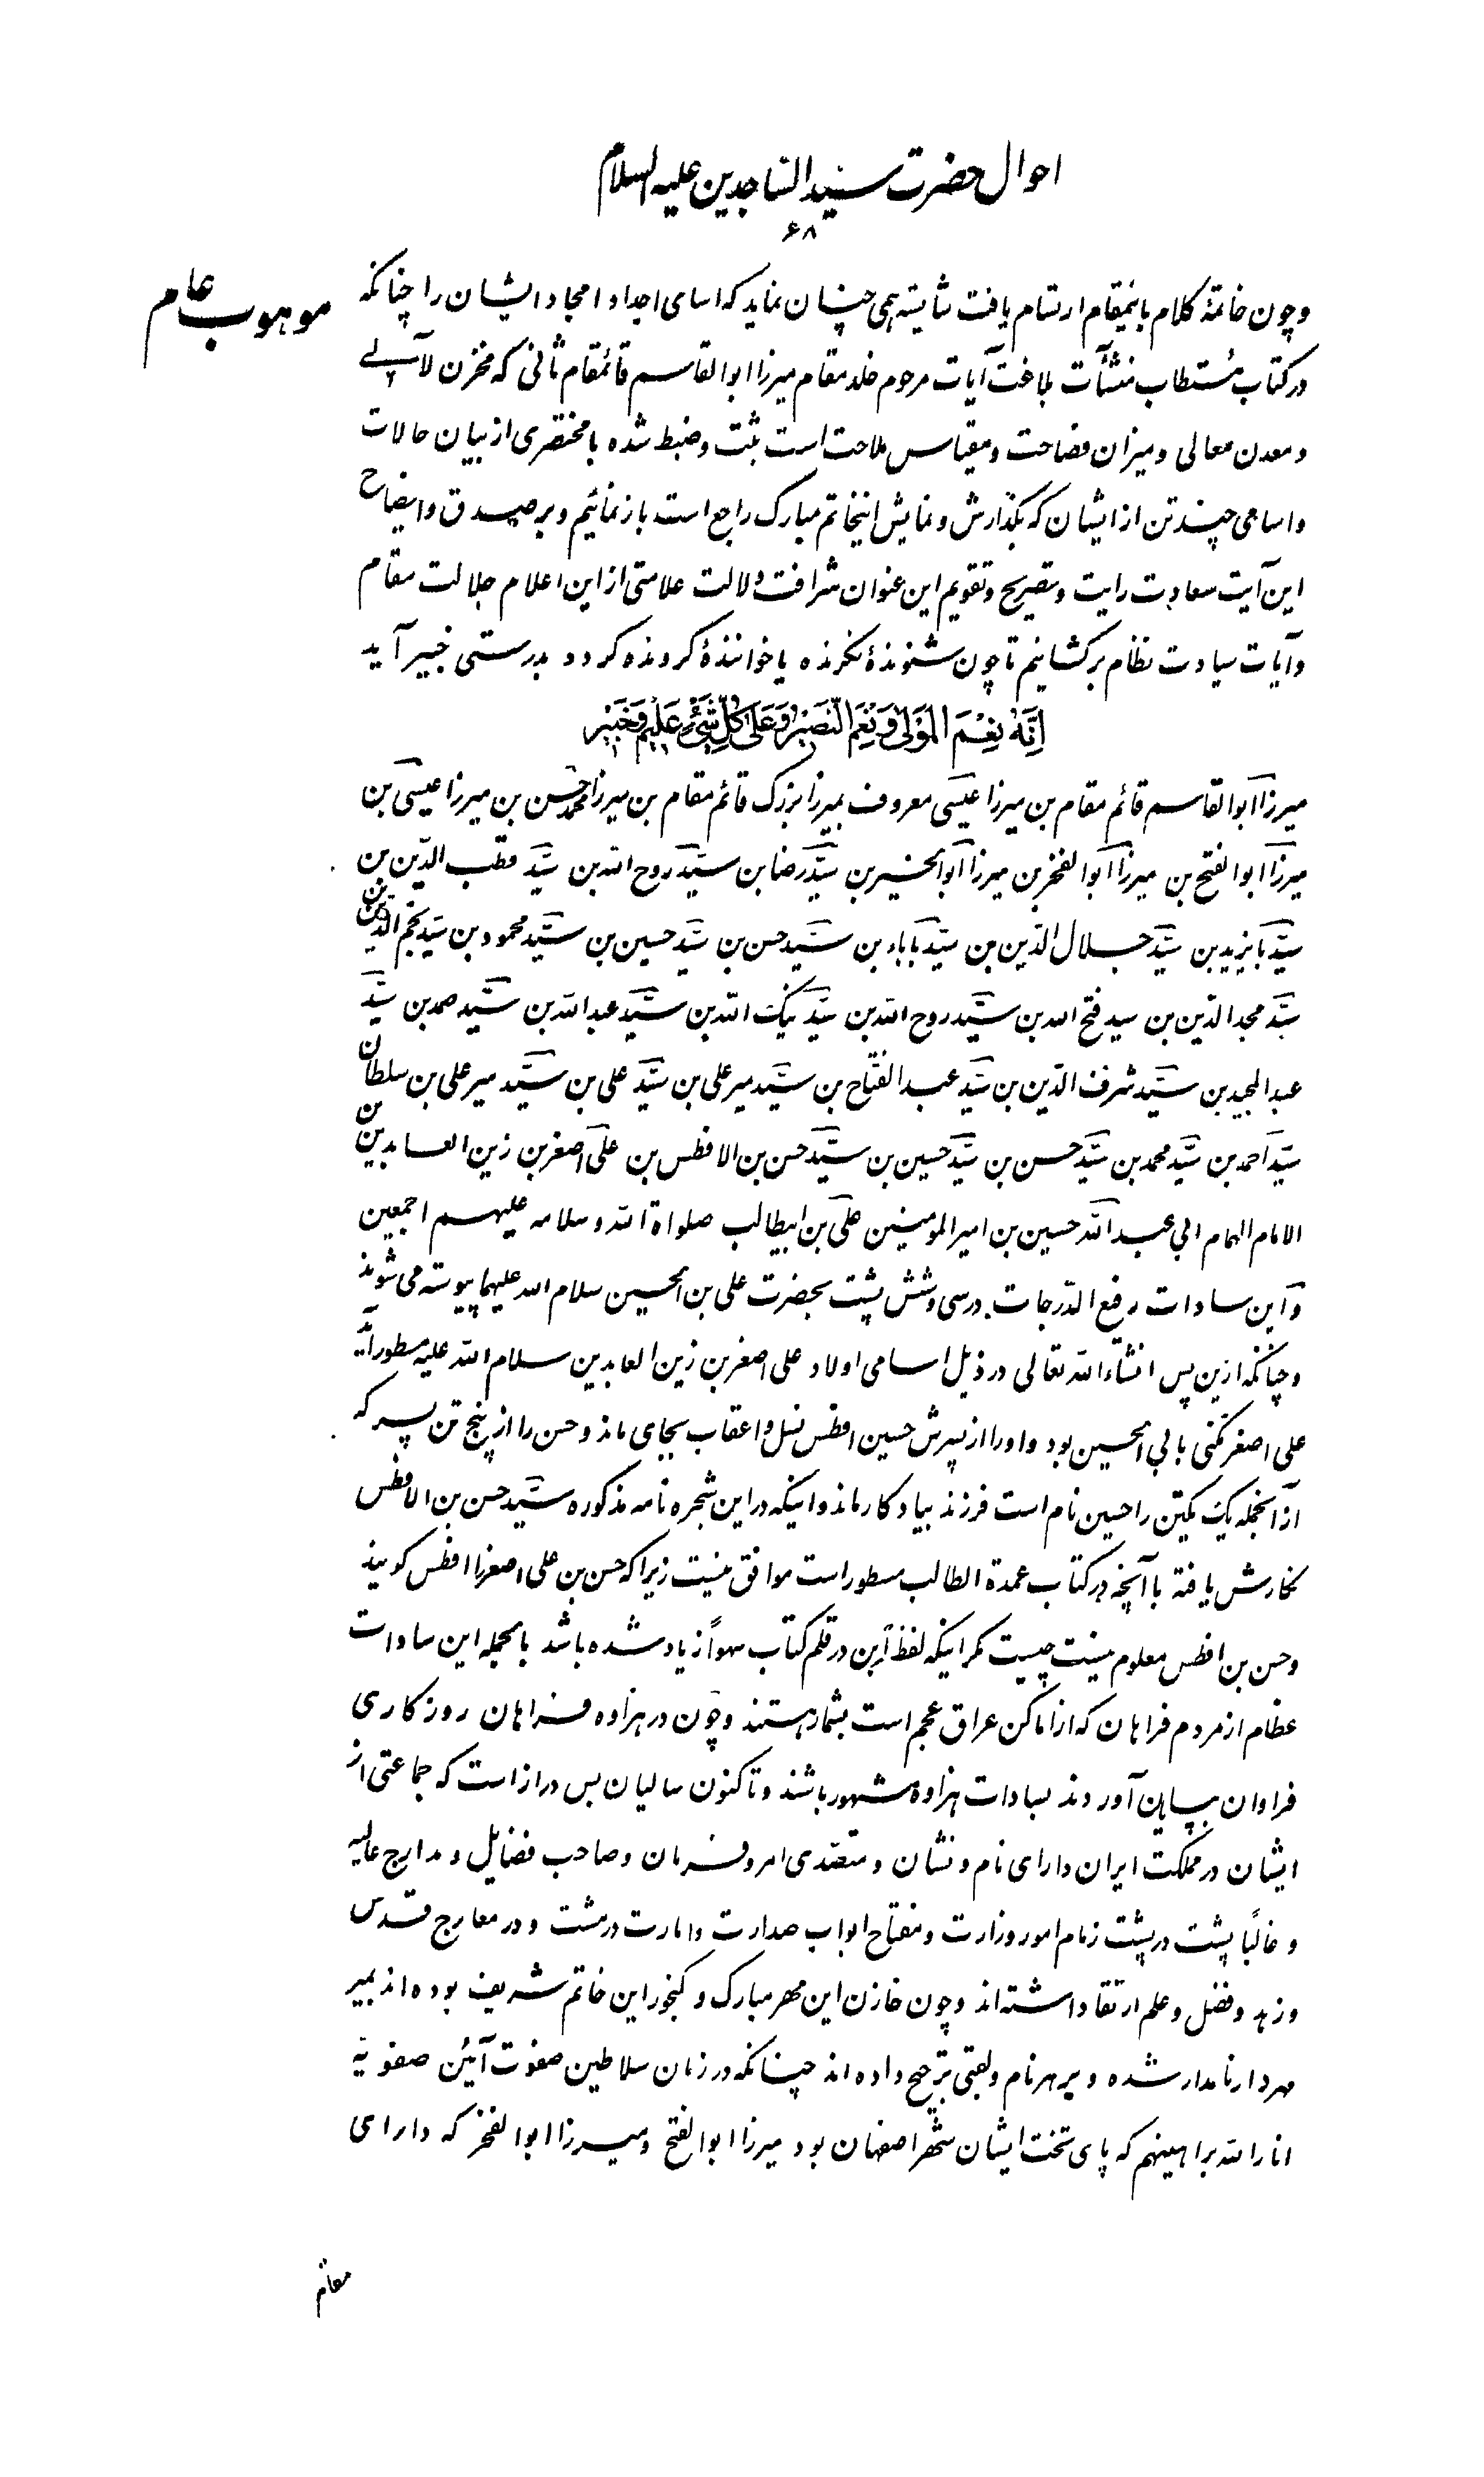 احوال حضرت سیّد السّاجدین علیه السلام
۶۸
موهوب عام
وچون خاتمهٔ کلام باینمقام ارتسام یافت شایسته همی چنان نماید که اسامی اجداد امجاد ایشان را چنانکه
در کتاب مستطاب منشآت بلاغت آیات مرحوم خلد مقام میرزا ابوالقاسم قائمقام ثانی که مخزن لآلی
و معدن معالی و میزان فصاحت و مقیاس ملاحت است ثبت و ضبط شده با مختصری از بیان حالات
و اسامی چند تن از ایشان که بگذارش و نمایش اینخاتم مبارک راجع است باز نمائیم و بر صدق و ایضاح
این آیت سعادت رایت و تصریح و تقویم این عنوان شرافت دلالت علامتی از این اعلام جلالت مقام
و آیات سیادت نظام برکشانیم تا چون شنوندهٔ نگرنده یا خوانندهٔ گرونده گردد بدرستی خبیر آید
اِنَّهُ نِعْمَ الْمَوْلیٰ وَ نِعْمَ النَّصیٖرُ وَ عَلیٰ کُلِّ شَیْءٍ عَلیٖمٌ وَ خَبیٖر
میرزا ابوالقاسم قائم مقام بن میرزا عیسی معروف بمیرزا بزرک قائم مقام بن میرزا محمد حسن بن میرزا عیسی بن
میرزا ابوالفتح بن میرزا ابوالفخر بن میرزا ابوالخیر بن سیّد رضا بن سیّد روح الله بن سیّد قطب الدّین بن
سیّد بایزید بن سیّد جلال الدّین بن سیّد باباء بن سیّد حسن بن سیّد حسین بن سیّد محمود بن سیّد نجم الدّین بن
سیّد مجد الدّین بن سید فتح الله بن سیّد روح الله بن سیّد نیک الله بن سیّد عبد الله بن سیّد صمد بن سیّد
عبد المجید بن سیّد شرف الدّین بن سیّد عبد الفتّاح بن سیّد میر علی بن سیّد علی بن سیّد میر علی بن سلطان
سیّد احمد بن سیّد محمد بن سیّد حسن بن سیّد حسین بن سیّد حسن بن الافطس بن علی اصغر بن زین العابدین بن
الامام الهمام ابی عبد الله حسین بن امیر المومنین علی بن ابیطالب صلواة الله و سلامه علیهم اجمعین
و این سادات رفیع الدّرجات در سی و شش پشت بحضرت علی بن الحسین سلام الله علیهما پیوسته می شوند
و چنانکه ازین پس انشاء الله تعالی در ذیل اسامی اولاد علی اصغر بن زین العابدین سلام الله علیه مسطور آید
علی اصغر مکنّی بابی الحسین بود و او را از پسرش حسین افطس نسل و اعقاب بجای ماند و حسن را از پنج تن پسر که
از آنجمله یک یکتن را حسین نام است فرزند بیادکار ماند و اینکه در این شجره نامه مذکوره سیّد حسن بن الافطس
نکارش یافته با آنچه در کتاب عمدة الطالب مسطور است موافق نیست زیرا که حسن بن علی اصغر را افطس کویند
و حسن بن افطس معلوم نیست چیست مکر اینکه لفظ ابن در قلم کتاب سهواً زیاد شده باشد بالجمله این سادات
عظام از مردم فراهان که از اماکن عراق عجم است بشمار هستند و چون در هزاوه فراهان روزکاری
فراوان بپایان آوردند بسادات هزاوه مشهور باشند و تاکنون سالیان بس دراز است که جماعتی از
ایشان در مملکت ایران دارای نام و نشان و متصّدی امر و فرمان و صاحب فضایل و مدارج عالیه
و غالبًا پشت در پشت زمام امور وزارت و مفتاح ابواب صدارت و امارت در مشت و در معارج قدس
و زهد و فضل و علم ارتقا داشته اند و چون خازن این مهر مبارک و کنجور این خاتم شریف بوده اند بمیر
مهردار نامدار شده و بر هر نام و لقبی ترجیح داده اند چنانکه در زمان سلاطین صفوت آئین صفویّه
انار الله براهینهم که پای تخت ایشان شهر اصفهان بود میرزا ابوالفتح و میرزا ابوالفخر که دارای
مقام